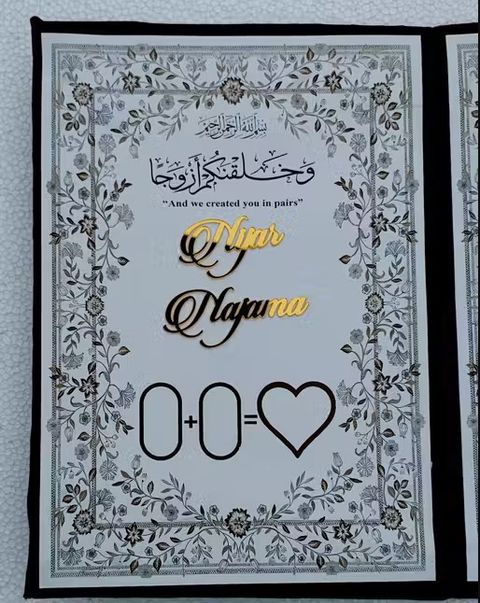 بسم الله الرحمن الرحيم
وَخَلَقْنَٰكُمْ أَزْوَٰجًا
"And we created you in pairs"
Nyar
Najama
+ =